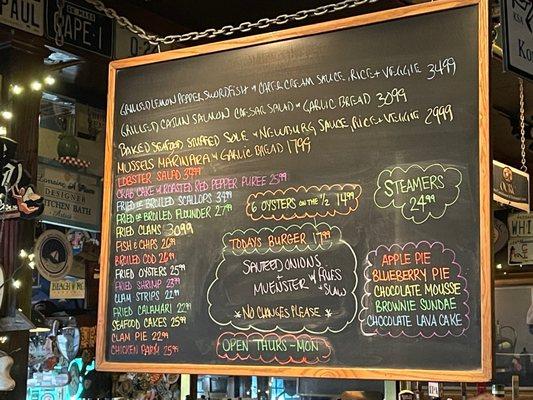 PAUL
CAPE I
GRILLED LEMON PEPPER SWORDFISH W CAPER CREAM SAUCE, RICE + VEGGIE 3499
GRILLED CAJUN SALMON CAESAR SALAD + GARLIC BREAD 3099
BAKED SEAFOOD STUFFED SOLE W NEWBURG SAUCE RICE + VEGGIE 2999
MUSSELS MARINARA W GARLIC BREAD 1799
LOBSTER SALAD 3499
CRAB CAKE W ROASTED RED PEPPER PUREE 2599
FRIED OR BROILED SCALLOPS 3499
FRIED OR BROILED FLOUNDER 2799
FRIED CLAMS 3099
FISH & CHIPS 2699
BROILED COD 2699
FRIED OYSTERS 2599
FRIED SHRIMP 2399
CLAM STRIPS 2299
FRIED CALAMARI 2299
SEAFOOD CAKES 2599
CLAM PIE 2299
CHICKEN PARM 2599
6 OYSTERS ON THE ½ 1499
TODAYS BURGER 1799
SAUTEED ONIONS
+
MUENSTER
W FRIES
+ SLAW
*NO CHANGES PLEASE*
OPEN THURS-MON
STEAMERS
2499
APPLE PIE
BLUEBERRY PIE
CHOCOLATE MOUSSE
BROWNIE SUNDAE
CHOCOLATE LAVA CAKE
DESIGNER
KITCHEN BATH